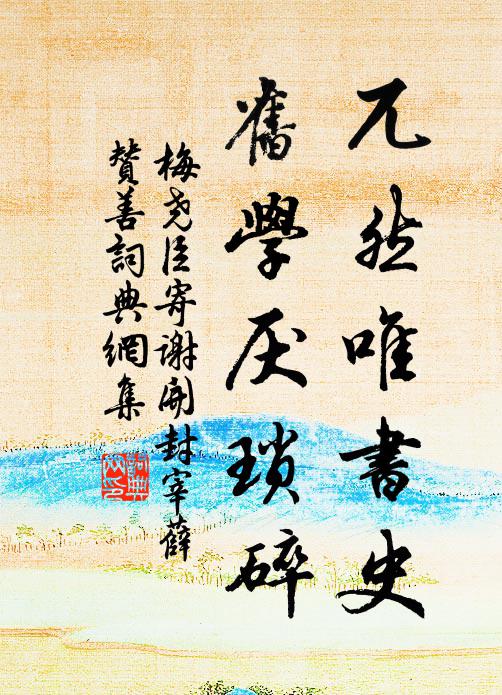 兀然唯書史
舊學厌瑣碎
梅尧臣寄谢開封宰薛
贊善詞典網集
詞典